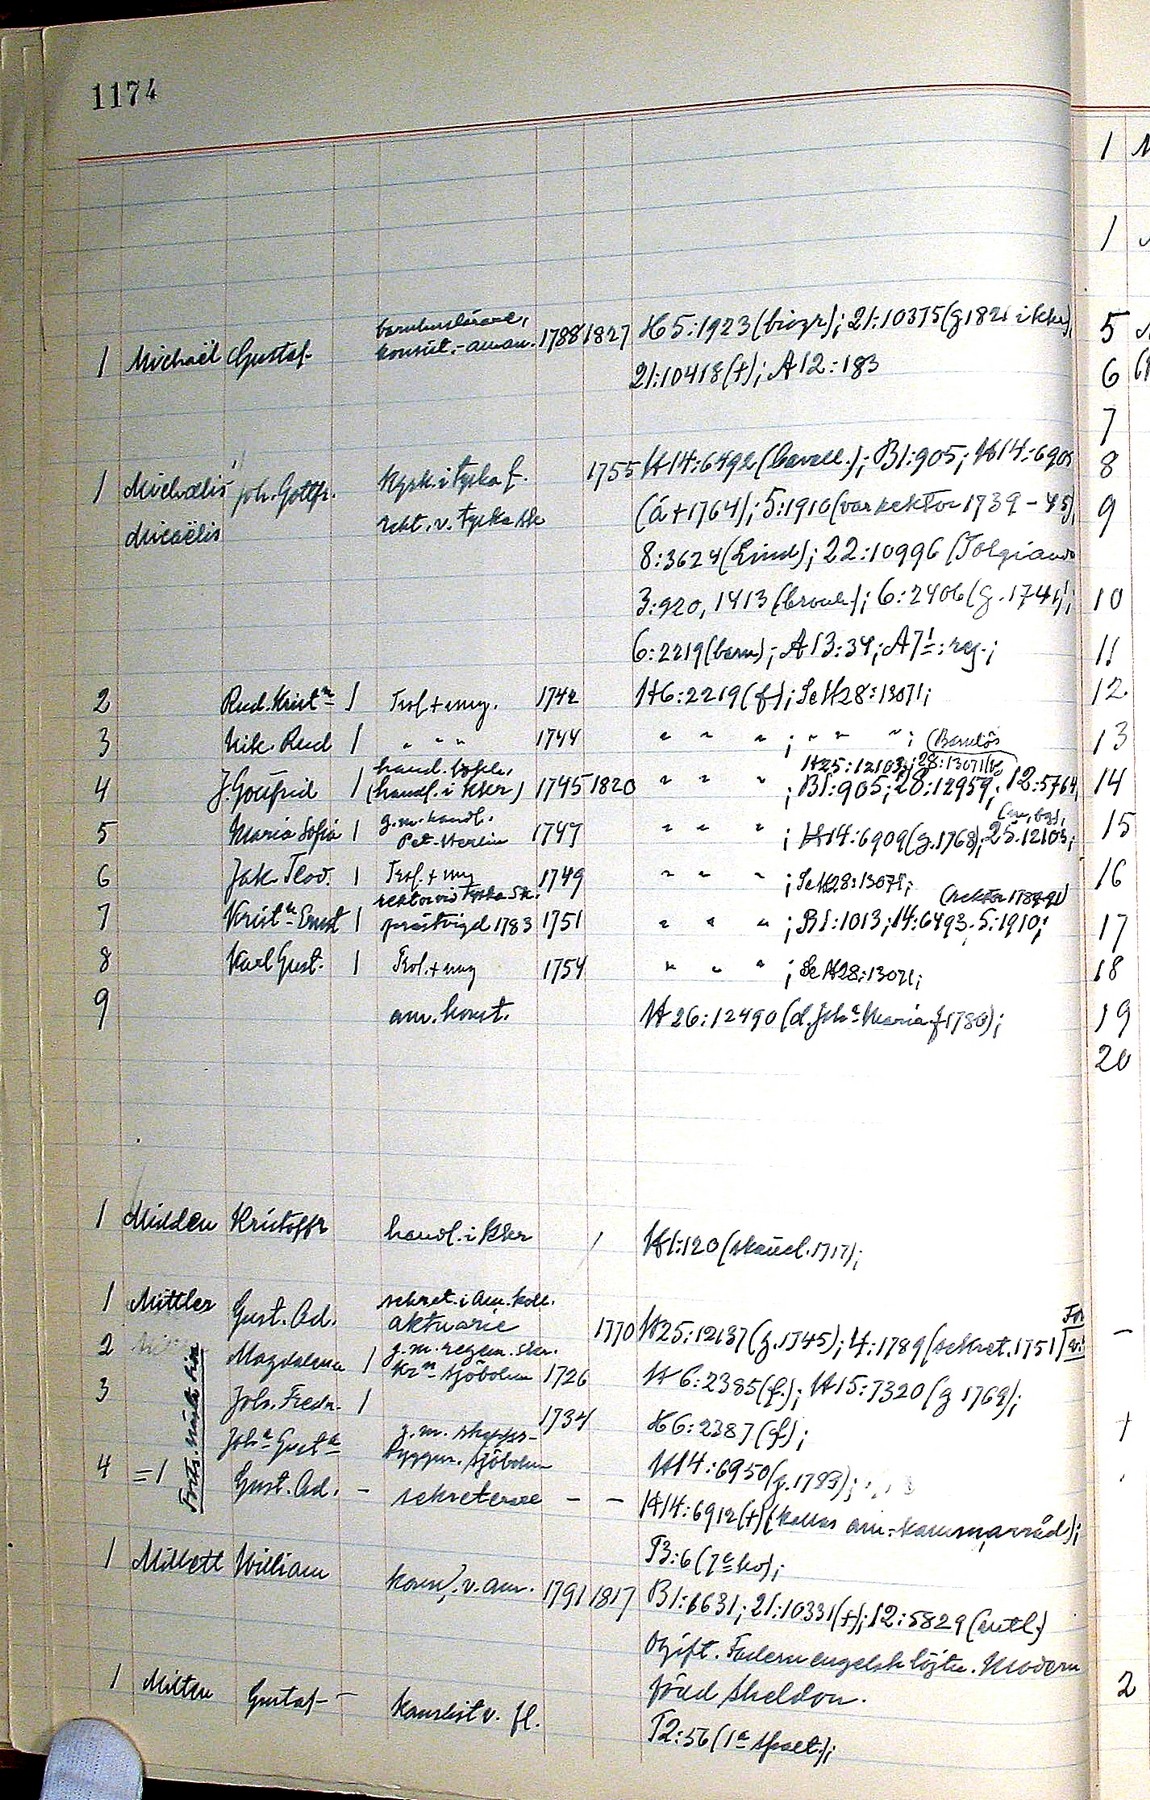 1174
barnhuslärare,
1 Michaël Gustaf konsist.-aman. 1788 1827 H5:1923 (biogr); 21:10375 (g 1821 i Kkr),
21:10418 (†); A12:183
1 Michaelis Joh. Gottfr. Kyrk. i tyska f. 1755 H14:6492 (Cavall.); B1:905; H14:6909
Micaëlis rekt. v. tyska sk (å †1764); 5:1910 (var rektor 1739-45),
8:3624 (Lind); 22:10996 (Tolgiano
3:920, 1413 (brork.); 6:2406 (g. 1741);
6:2219 (barn); A13:34; A7: reg.;
2 Rud. Krist:n 1 Trol. † ung. 1742 H6:2219 (f); Se H28:13071;
3 Nik. Rud 1 " " " 1744 " " " ; " " "; (Barnlös
hand. H25:12103; 28:13071
4 J. Gottfrid 1 (handl. i Kkr) 1745 1820 " " " ; B1:905; 28:12959; 12:5764
5 Maria Sofia 1 g. m. handl. Pet. Merlin 1747 " " " ; H14:6909 (g. 1768); 25:12103;
6 Jak. Teod. 1 Trol. † ung 1749 " " " ; Se H28:13071;
rektor vid tyska sk. (rektor 1784-91)
7 Krist:n Ernst 1 prästvigd 1783 1751 " " " ; B1:1013; 14:6493. 5:1910;
8 Karl Gust. 1 Trol. † ung 1754 " " " ; Se H28:13071;
9 am. konst. H26:12490 (d. Joh:a Maria f 1780);
1 Midden Kristoffr handl. i Kkr H1:120 (skänd. 1717);
sekret. i Am. koll.
1 Mittler Gust. Ad. aktuarie 1770 H25:12137 (g. 1745); 4:1789 (sekret. 1751)
g. m. regem. skr.
2 Magdalena 1 Kr:n Sjöbohm 1726 H6:2385 (f.); H15:7320 (g 1769);
3 Joh. Fredr. 1 1734 H6:2387 (f);
Joh:a Gust:a g. m. skepps-
byggm. Sjöbohm H14:6950 (g. 1793);
4 =1 Gust. Ad. - sekreterare - - H14:6912 (†) (kallas am:kammarråd);
Forts. nästa sida
T3:6 (7:e ko);
1 Millett William konst. v. am. 1791 1817 B1:6631; 21:10331 (†); 12:5829 (autl.)
Ogift. Fadern engelsk löjtn. Modern
född Sheldon.
1 Milten Gustaf kanslist v. fl. T2:56 (1:a skaet.);
1
1
5
6
7
8
9
10
11
12
13
14
15
16
17
18
19
20
2